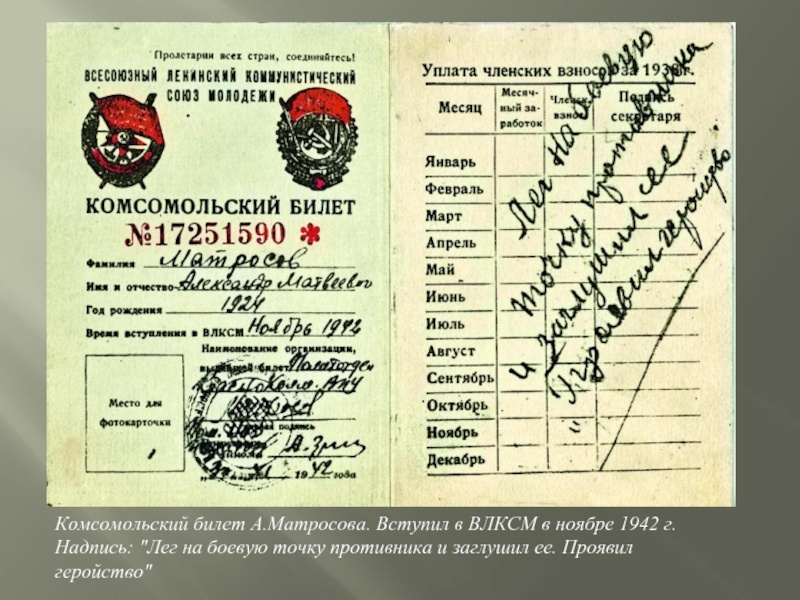 Пролетарии всех стран, соединяйтесь!
ВСЕСОЮЗНЫЙ ЛЕНИНСКИЙ КОММУНИСТИЧЕСКИЙ
СОЮЗ МОЛОДЕЖИ
КОМСОМОЛЬСКИЙ БИЛЕТ
№17251590 *
Фамилия Матросов
Имя и отчество Александр Матвеевич
Год рождения 1924
Время вступления в ВЛКСМ Ноябрь 1942
Наименование организации,
выдавшей билет Политотдел
подпись
1942 года
Место для
фотокарточки
Уплата членских взносов за 1938 г.
Месяц
Месяч-
ный за-
работок
Членск.
взнос
Подпись
секретаря
Январь
Февраль
Март
Апрель
Май
Июнь
Июль
Август
Сентябрь
Октябрь
Ноябрь
Декабрь
Лег на боевую
точку противника
и заглушил ее
Проявил геройство
Комсомольский билет А.Матросова. Вступил в ВЛКСМ в ноябре 1942 г.
Надпись: "Лег на боевую точку противника и заглушил ее. Проявил
геройство"